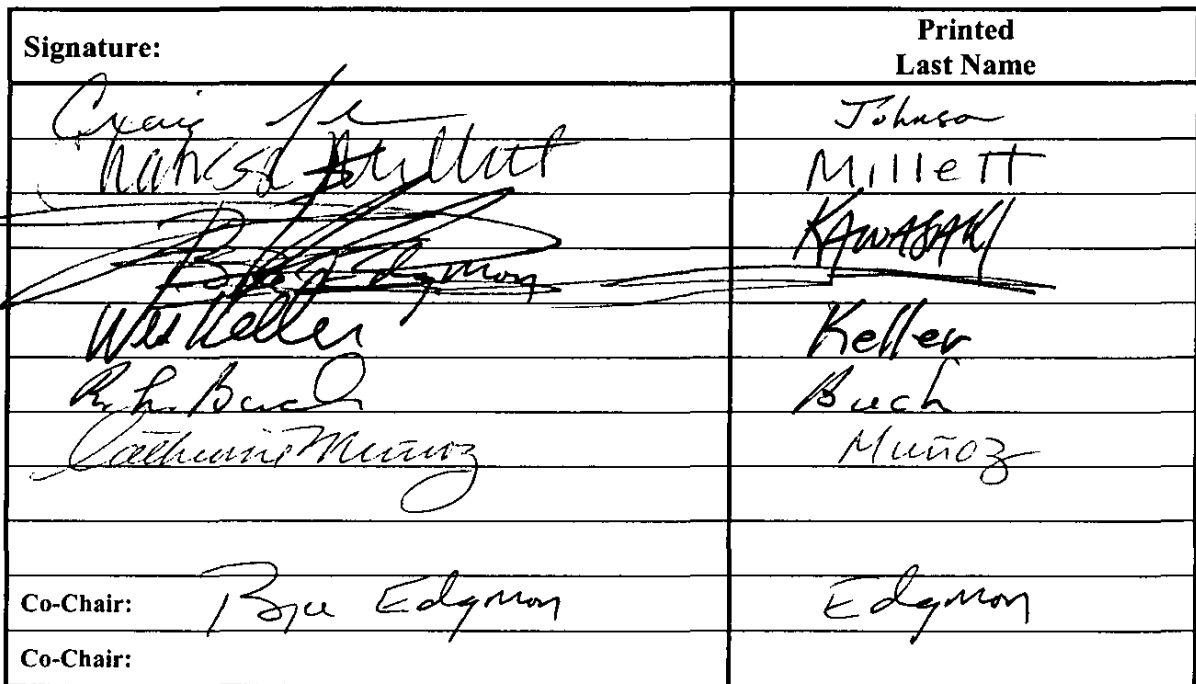 Signature: Printed Last Name
Craig Johnson
Millett
KAWASAKI
Bryce Edgmon
Wes Keller Keller
Buch
Catherine Muñoz Muñoz
Co-Chair: Bryce Edgmon Edgmon
Co-Chair: